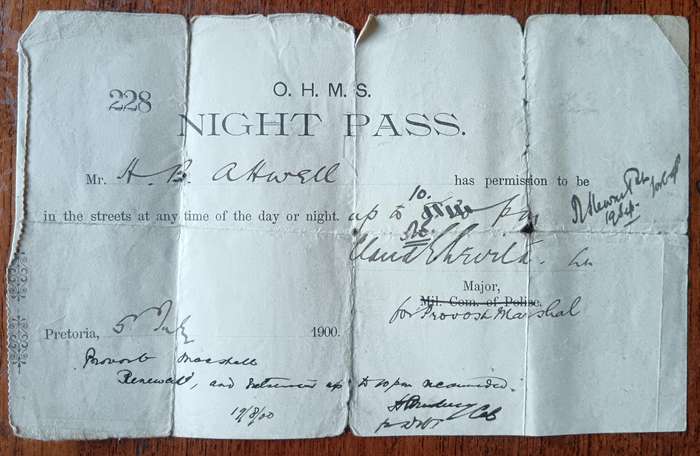 O. H. M. S.
228
NIGHT PASS.
Mr. H. B. Attwell has permission to be
in the streets at any time of the day or night. up to 10. pm
Major,
Mil. Com. of Police.
for Provost Marshal
Pretoria, 5 July 1900.
Provost Marshall
Renewed, and extension up to 10 pm rescinded.
12/8/00